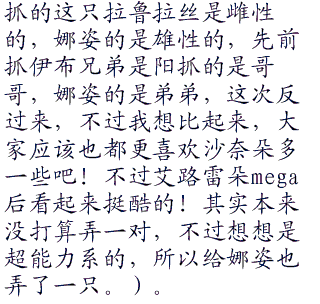 抓的这只拉鲁拉丝是雌性
的，娜姿的是雄性的，先前
抓伊布兄弟是阳抓的是哥
哥，娜姿的是弟弟，这次反
过来，不过我想比起来，大
家应该也都更喜欢沙奈朵多
一些吧！不过艾路雷朵mega
后看起来挺酷的！其实本来
没打算弄一对，不过想想是
超能力系的，所以给娜姿也
弄了一只。）。